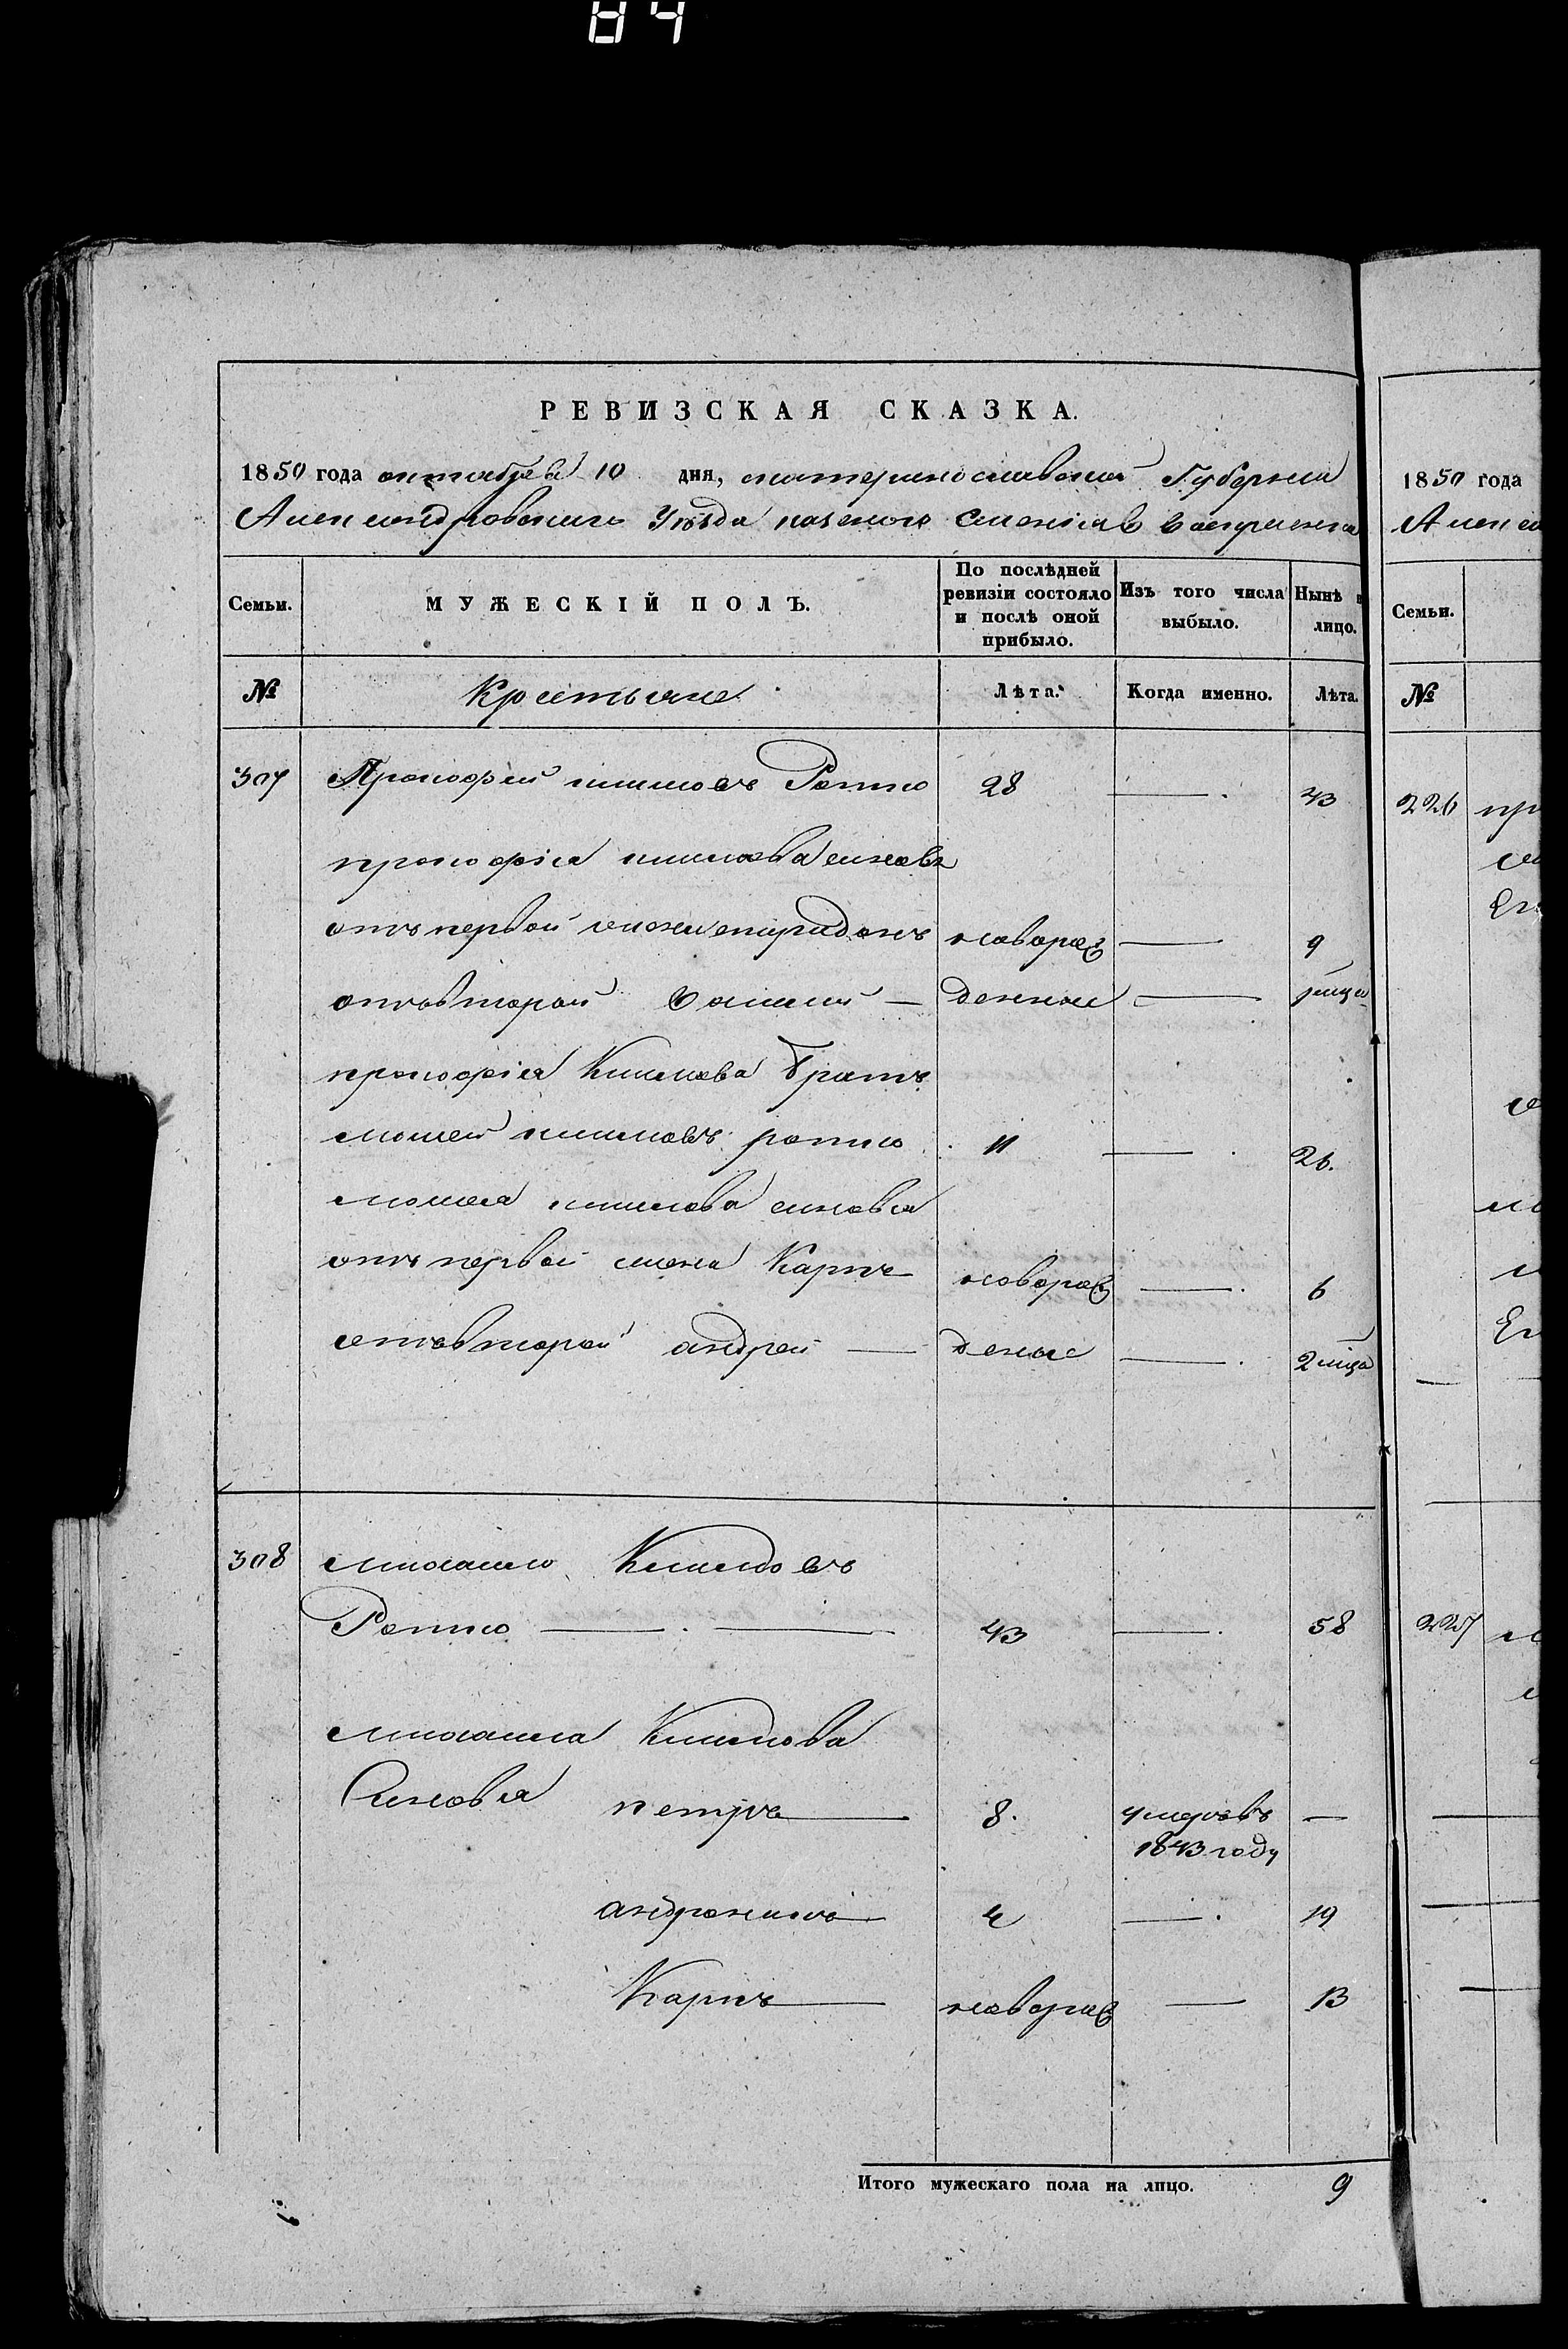 84
РЕВИЗСКАЯ СКАЗКА.
1850 года октября 10 дня, екатеринославской Губернии
Александровского Уѣзда казеного
Семьи.
МУЖЕСКІЙ ПОЛЪ.
По послѣдней ревизіи состояло и послѣ оной прибыло.
Изъ того числа выбыло.
Нынѣ
лицо.
№
Крестьяне
Лѣта.
Когда именно.
Лѣта.
307 Прокофей климовъ 28 — 43
прокофія климова синовя
отъ первой жени спиридонъ новорож — 9
отвторой — денные —
прокофія Климова братъ
мосей климовъ 11 — 26.
мосея климова синовя
отъ первой жени Карпъ новорож — 6
отвторой андрей — деные — 2 мца
308 михаило Климовъ
43 — 58
михаила Климова
Синовя петръ 8. умеръ въ —
1843 году
андроникъ 4 — 19
Карпъ новорож — 13
Итого мужескаго пола на лицо. 9
1850 года
Семьи.
№
226
227